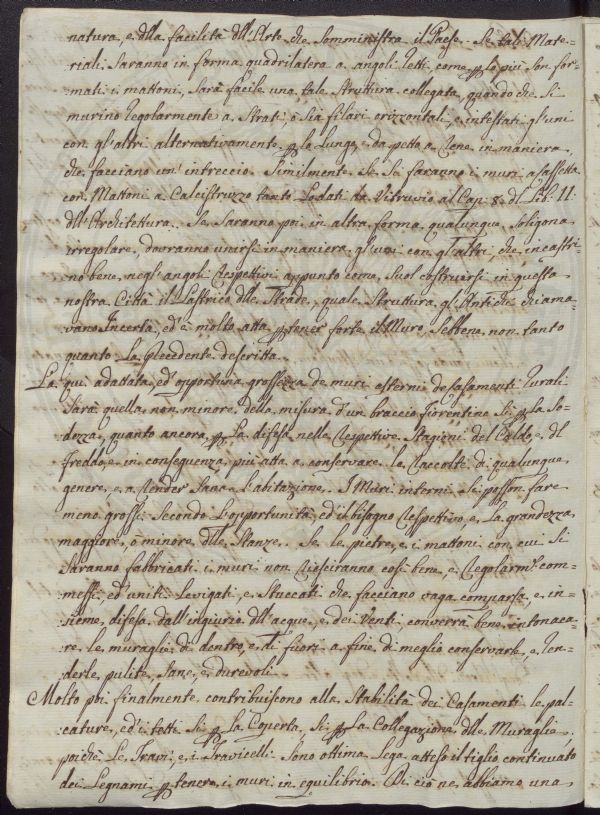 natura, e dlla facilità dll'Arte che somministra il Paese. Se tali Mate=
riali saranno in forma quadrilatera a angoli retti come p lo più son for=
mati i mattoni, sarà facile una tale struttura collegata, quando che si
murino regolarmente a strati, o sia filari orizzontali, e intestati gl'uni
con gl'altri alternativamente p lo lungo, da petto a rene in maniera
che facciano un'intreccio. Similmente se si faranno i muri a cassetta
con Mattoni a Calcistruzzo tanto lodati da Vitruvio al Cap: 8. dl Lib: II.
dll'Architettura. Se saranno poi in altra forma qualunque Poligona
irregolare, dovranno unirsi in maniera gl'uni con gl'altri, che incastri=
no bene negl'angoli respettivi appunto come suol costruirsi in questa
nostra Città il Lastrico dlle Strade, quale struttura gl'Antichi chiama=
vano Incerta, ed'è molto atta p tener forte il Muro, sebbene non tanto
quanto la precedente descritta.
La qui adattata, ed'opportuna grossezza de muri esterni de Casamenti rurali
sarà quella non minore della misura d'un braccio fiorentino sì p la so=
dezza, quanto ancora p la difesa nelle respettive Stagioni del Caldo, e dl
freddo, e in conseguenza più atta a conservare le raccolte di qualunque
genere, e a render sana l'abitazione. I Muri interni si posson fare
meno grossi secondo l'opportunità, ed'il bisogno respettivo, e la grandezza
maggiore, o minore dlle Stanze. Se le pietre, e i mattoni con cui si
saranno fabbricati i muri non riesciranno così bene, e regolarm.e com=
messi, ed'uniti levigati, e stuccati che facciano vaga comparsa, e in=
sieme difesa dall'ingiurie dll'acque, e dei Venti converrà bene intonaca=
re le muraglie di dentro, e di fuori a fine di meglio conservarle, e ren=
derle pulite, sane, e durevoli.
Molto poi finalmente contribuiscono alla stabilità dei Casamenti le pal=
cature, ed'i tetti sì p la Coperta, sì p la Collegazione dlle Muraglie
poichè le Travi, e i Travicelli sono ottima lega atteso il tiglio continuato
dei Legnami p tenere i muri in equilibrio. Di ciò ne abbiamo una